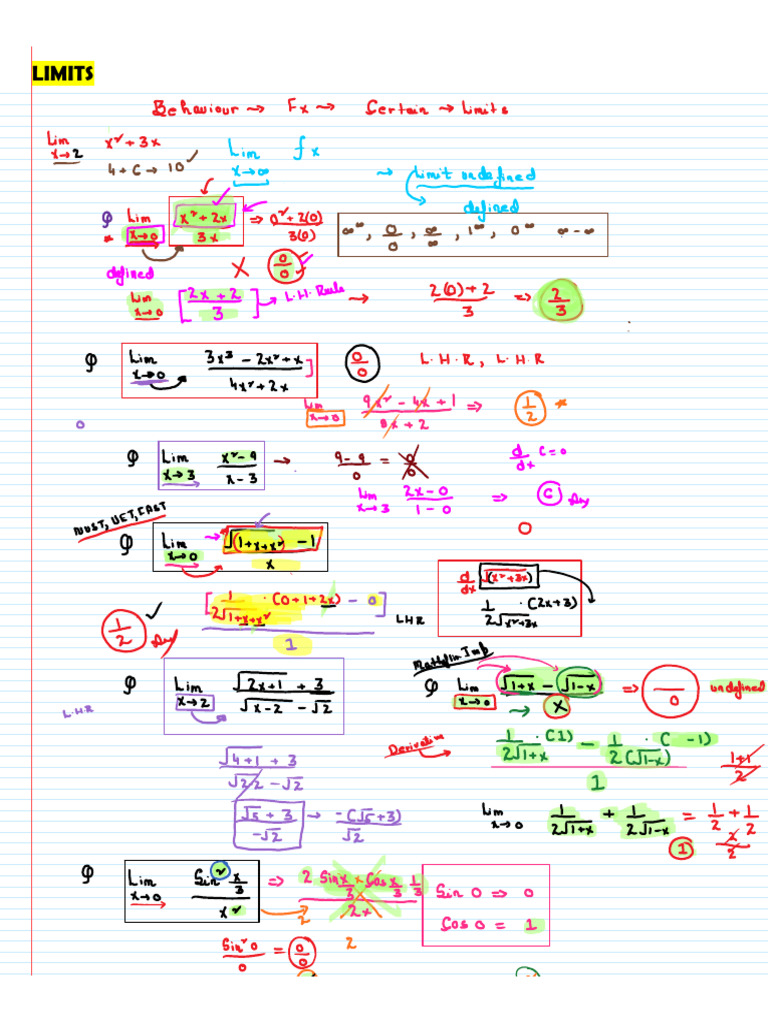 LIMITS
Behaviour → Fx → Certain → Limits
Lim x→2 x² + 3x
4 + 6 → 10 ✓
Lim x→∞ fx
→ Limit undefined
defined
Q Lim x→0 x² + 2x / 3x ⇒ 0² + 2(0) / 3(0)
∞^∞, 0/0, ∞/∞, 1^∞, 0^∞ ∞-∞
defined
X 0/0
Lim x→0 [2x + 2 / 3] → L.H Rule → 2(0) + 2 / 3 ⇒ 2/3
Q Lim x→0 3x³ - 2x² + x / 4x² + 2x ] 0/0 L.H.R, L.H.R
Lim x→0 9x² - 4x + 1 / 8x + 2 ⇒ 1/2 *
0
Q Lim x→3 x² - 9 / x - 3 → 9 - 9 / 0 = 0/0
d/dx C = 0
Lim x→3 2x - 0 / 1 - 0 ⇒ 6
0
NUST, UET, FAST
Q Lim x→0 √(1 + x + x²) - 1 / x
d/dx √(x² + 3x)
1 / 2√(x² + 3x) · (2x + 3)
[1 / 2√(1 + x + x²) · (0 + 1 + 2x) - 0 / 1
1/2 ✓
LHR
Q Lim x→2 √(2x + 1) + 3 / √(x - 2) - √2
L.HR
Imp
Q Lim x→0 √(1+x) - √(1-x) / x ⇒ — / 0 undefined
Derivative
1 / 2√(1+x) · (1) - 1 / 2(√(1-x)) · (-1) / 1
1+1 / 2
√(4+1) + 3 / √(2-2) - √2
√5 + 3 / -√2 → -(√5 + 3) / √2
Lim x→0 1 / 2√(1+x) + 1 / 2√(1-x) = 1/2 + 1/2
2/2
1
Q Lim x→0 Sin² x/3 / x² ⇒ 2 Sin x/3 × Cos x/3 · 1/3 / 2x
2
Sin 0 ⇒ 0
Cos 0 = 1
Sin² 0 / 0 = 0/0
2